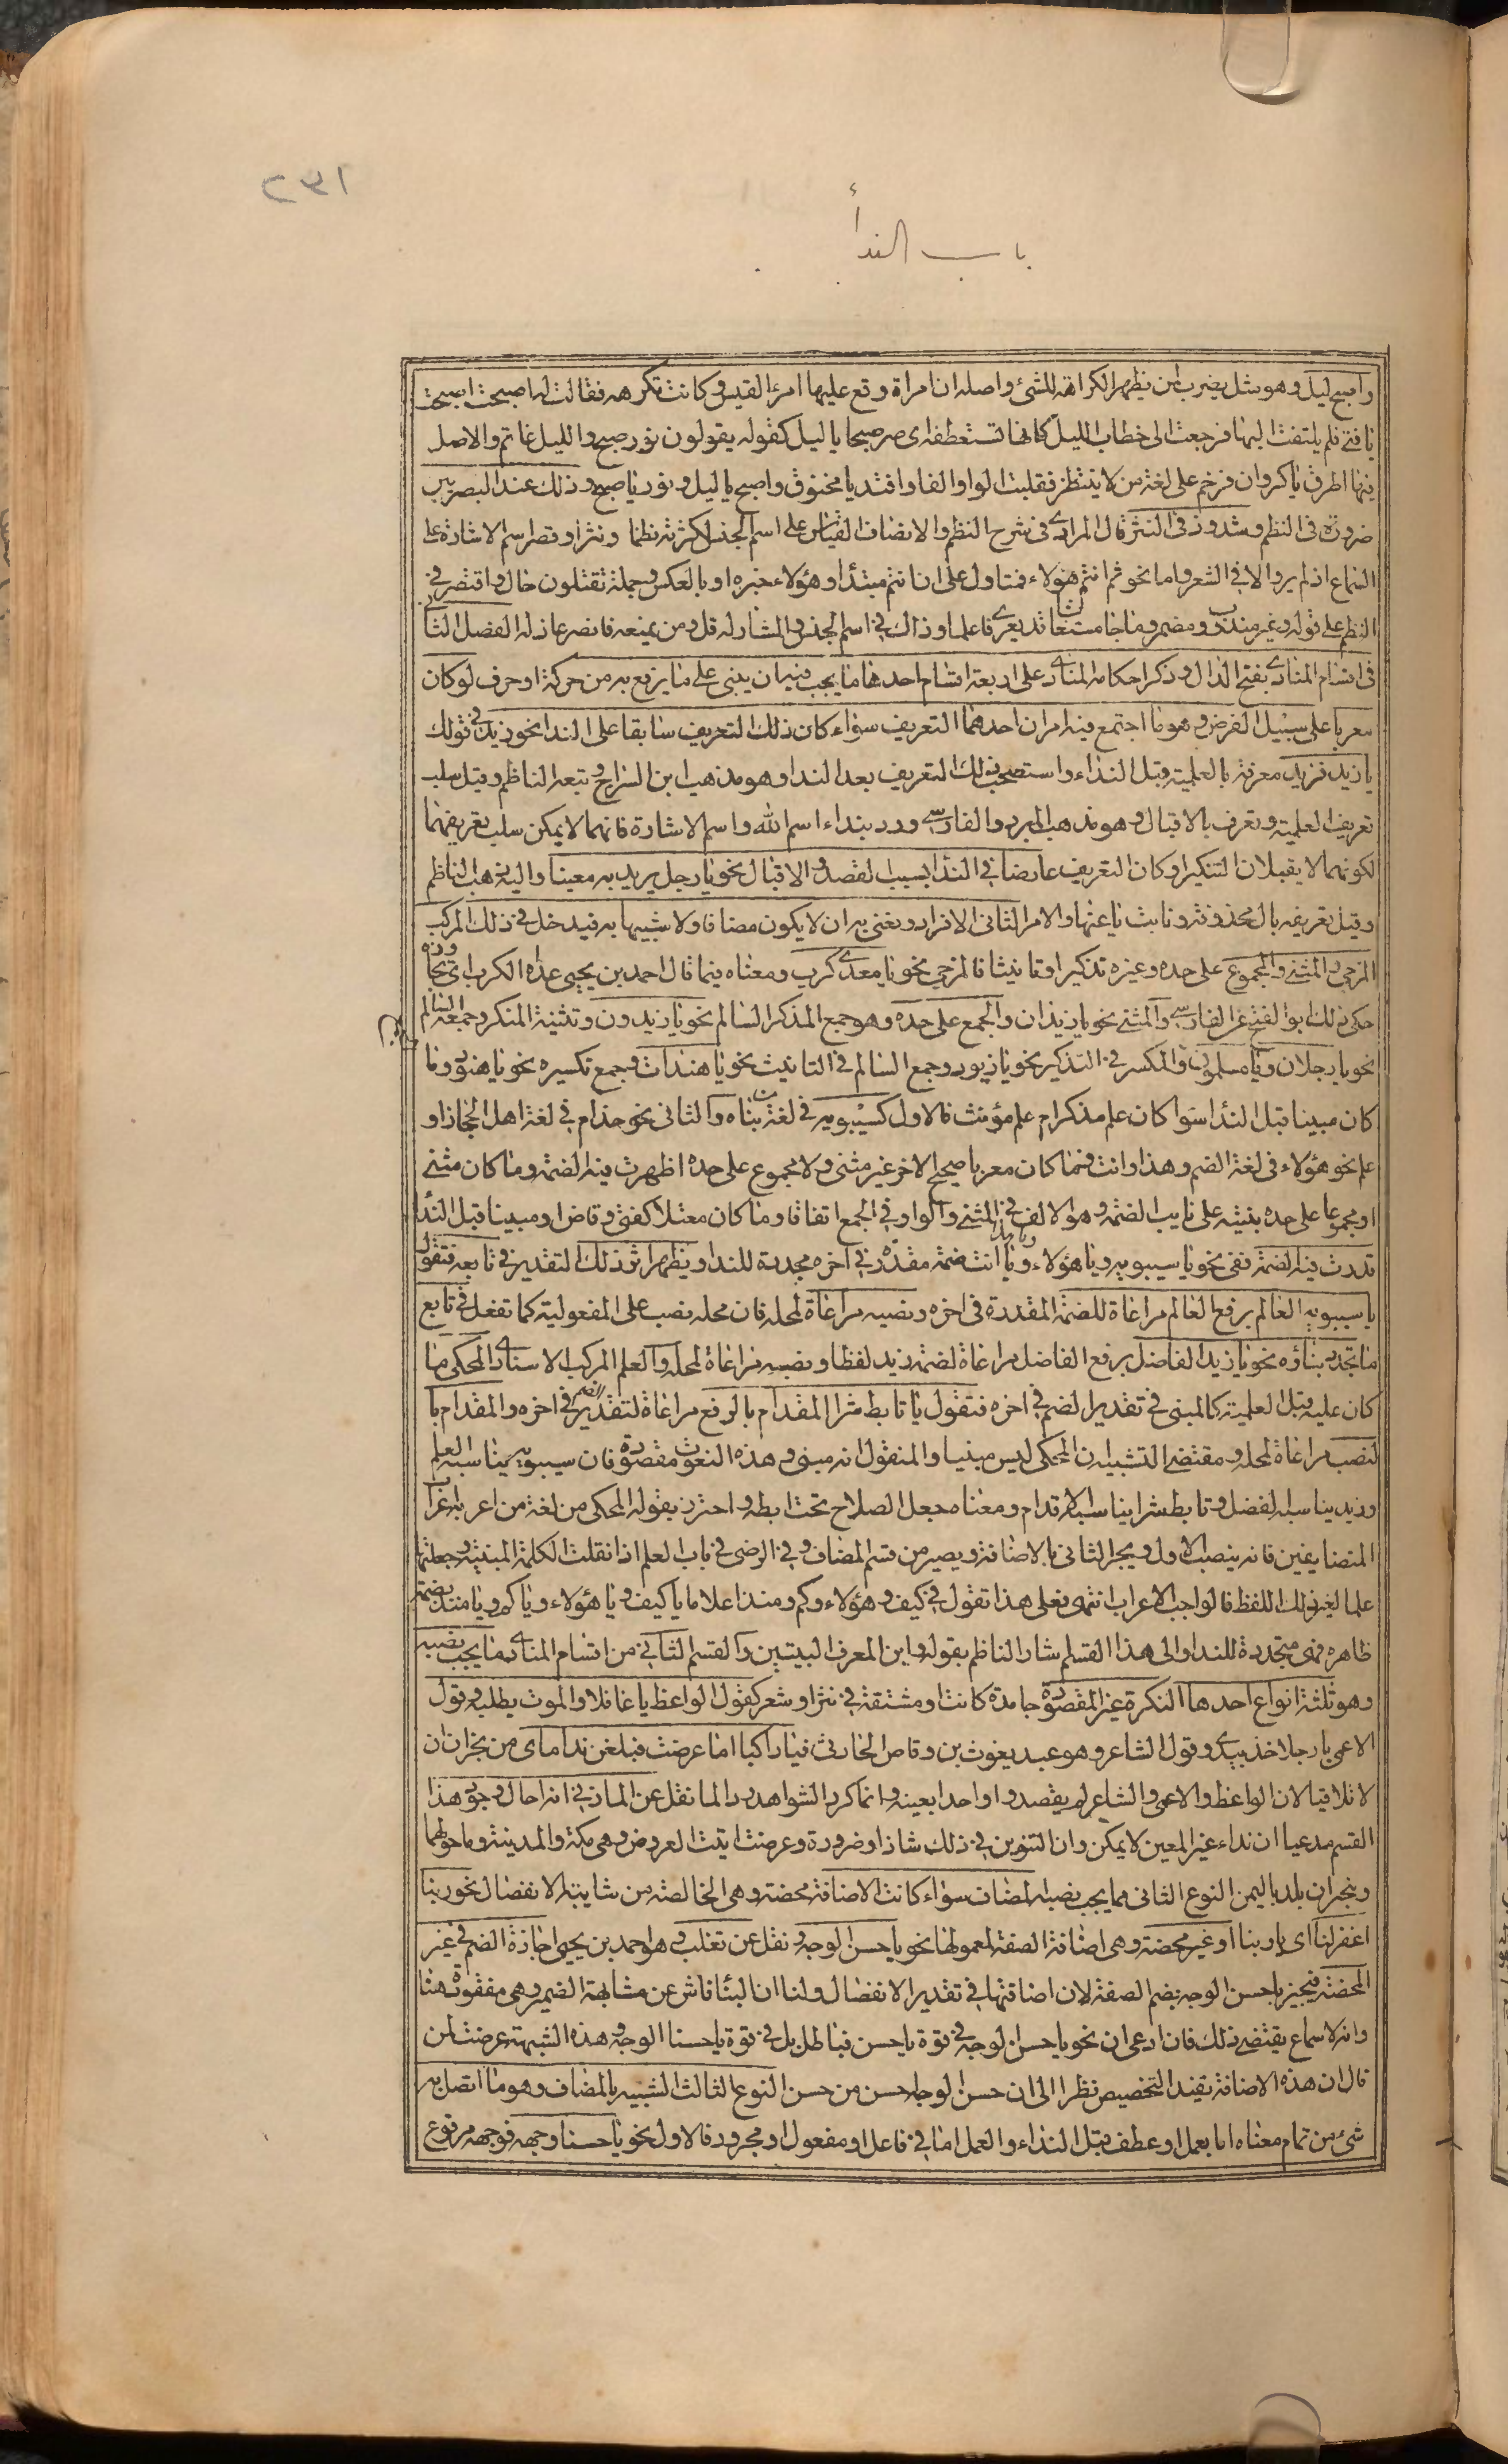 ١٣٢
باب الندأ
واصبح ليل وهو مثل يضرب لمن يظهر الكراهة للشئ واصله ان امراة وقع عليها امرؤ القيس وكانت تكرهه فقالت له اصبحت اصبحت
يا فتى فلم يلتفت اليها فرجعت الى خطاب الليل كانها تستعطفه اى صر صبحا يا ليل كقوله يقولون نور صبح والليل عاتم والاصل
فيها اطرق يا كروان فرخم على لغة من لا ينتظر فقلبت الواو الفا وافتد يا مخنوق واصبح يا ليل ونور يا صبح وذلك عند البصريين
ضرورة فى النظم وشذوذ فى النثر قال المرادى فى شرح النظم والانصاف القياس على اسم الجنس لكثرته نظما ونثرا وقصر اسم الاشارة على
السماع اذ لم يرد الا فى الشعر واما نحو ثم انتم هؤلاء فمتاول على ان انتم مبتدأ وهؤلاء خبره او بالعكس وجملة تقتلون حال واقتصر فى
النظم على قوله وغير مندوب ومضمر وما جا مستغاثا قد يعرى فاعلما وذاك فى اسم الجنس والمشار له قل ومن يمنعه فانصر عاذله الفصل الثانى
فى اقسام المنادى بفتح الدال وذكر احكامه المنادى على اربعة اقسام احدها ما يجب فيه ان يبنى على ما يرفع به من حركة او حرف لو كان
معربا على سبيل الفرض وهو ما اجتمع فيه امران احدهما التعريف سواء كان ذلك التعريف سابقا على الندا نحو زيد فى قولك
يا زيد فزيد معرفة بالعلمية قبل النداء واستصحب ذلك التعريف بعد الندا وهو مذهب ابن السراج وتبعه الناظم وقيل سلب
تعريف العلمية وتعرف بالاقبال وهو مذهب المبرد والفارسى ورد بنداء اسم الله واسم الاشارة فانهما لا يمكن سلب تعريفهما
لكونهما لا يقبلان التنكير او كان التعريف عارضا فى الندأ بسبب القصد والاقبال نحو يا رجل يريد به معينا واليه ذهب الناظم
وقيل تعريفه بال محذوفة ونابت يا عنها والامر الثانى الافراد ونعنى به ان لا يكون مضافا ولا شبيها به فيدخل فى ذلك المركب
المزجى والمثنى والمجموع على حده وغيره تذكيرا وتانيثا فالمزجى نحو يا معدى كرب ومعناه فيما قال احمد بن يحيى عداه الكرب اى تجاوزه
حكى ذلك ابو الفتح عن الفارسى والمثنى نحو يا زيدان والجمع على حده وهو جمع المذكر السالم نحو يا زيدون وتثنية المنكر وجمعه السالم
نحو يا رجلان ويا مسلمون والمكسر فى التذكير نحو يا زيود وجمع السالم فى التانيث نحو يا هندات وجمع تكسيره نحو يا هنود وما
كان مبينا قبل الندأ سوا كان علم مذكر ام علم مؤنث فالاول كسيبويه فى لغة من بناه والثانى نحو حذام فى لغة اهل الحجاز او
علم نحو هؤلاء فى لغة الضم وهذا وانت فما كان معربا صحيح الاخر غير مثنى ولا مجموع على حده اظهرت فيه الضمة وما كان مثنى
او مجموعا على حده بنيته على نايب الضمة وهو الالف فى المثنى والواو فى الجمع اتفاقا وما كان معتلا كفتى وقاض او مبينا قبل الندأ
قدرت فيه الضمة ففى نحو يا سيبويه ويا هؤلاء ويا هذا ويا انت ضمة مقدرة فى اخره مجددة للندا ويظهر اثر ذلك التقدير فى تابعه فتقول
يا سيبويه العالم برفع العالم مراعاة للضمة المقددة فى اخره ونصبه مراعاة لمحله فان محله نصب على المفعولية كما تفعل فى تابع
ما تجدد بناؤه نحو يا زيد الفاضل برفع الفاضل مراعاة لضمة زيد لفظا ونصبه مراعاة لمحله والعلم المركب الاسنادى المحكى ما
كان عليه قبل العلمية كالمبنى فى تقدير الضم فى اخره فتقول يا تابط شرا المقدام بالرفع مراعاة لتقدير الضم فى اخره والمقدام با
لنصب مراعاة لمحله ومقتضى التشبيه ان المحكى ليس مبنيا والمنقول انه مبنى وهذه النعوت مقصورة فان سيبويه يناسبه العلم
وزيد يناسبه الفضل وتابط شرا يناسبه الاقدام ومعناه جعل الصلاح تحت ابطه واحترز بقوله المحكى من لغة من اعربه اعراب
المتضايفين فانه ينصب الاول ويجر الثانى بالاضافة ويصير من قسم المضاف وفى الرضى فى باب العلم اذا نقلت الكلمة المبنية وجعلتها
علما لغير ذلك اللفظ فالواجب الاعراب انتهى فعلى هذا تقول فى كيف وهؤلاء وكم ومنذ اعلاما يا كيف ويا هؤلاء ويا كم ويا منذ بضمة
ظاهره فهى متجددة للندا والى هذا القسم اشار الناظم بقوله وابن المعرف البيتين والقسم الثانى من اقسام المنادى ما يجب نصبه
وهو ثلثة انواع احدها النكرة غير المقصودة جامدة كانت او مشتقة فى نثر او شعر كقول الواعظ يا غافلا والموت يطلبه وقول
الاعمى يا رجلا خذ بيدى وقول الشاعر وهو عبد يغوث بن وقاص الحارثى فيا راكبا اما عرضت فبلغن نداماى من نجران ان
لا تلاقيا لان الواعظ والاعمى والشاعر لم يقصدوا واحدا بعينه وانما كرر الشواهد رد الما نقل عن المازنى انه احال وجود هذا
القسم مدعيا ان نداء غير المعين لا يمكن وان التنوين فى ذلك شاذ او ضرورة وعرضت اتيت العروض وهى مكة والمدينة وما حولهما
ونجران بلد باليمن النوع الثانى مما يجب نصبه المضاف سواء كانت الاضافة محضة وهى الخالصة من شايبة الانفصال نحو ربنا
اغفر لنا اى يا ربنا او غير محضة وهى اضافة الصفة لمعمولها نحو يا حسن الوجه ونقل عن ثعلب وهو احمد بن يحيى اجازة الضم فى غير
المحضة فيجيز يا حسن الوجه بضم الصفة لان اضافتها فى تقدير الانفصال ولنا ان البنا ناش عن مشابهة الضمير وهى مفقودة هنا
وانه لا سماع يقتضى ذلك فان ادعى ان نحو يا حسن الوجه فى قوة يا حسن فباطل بل فى قوة يا حسنا الوجه وهذه الشبهة عرضت لمن
قال ان هذه الاضافة تفيد التخصيص نظرا الى ان حسن الوجه احسن من حسن النوع الثالث الشبيه بالمضاف وهو ما اتصل به
شئ من تمام معناه اما بعمل او عطف قبل النداء والعمل اما فى فاعل او مفعول او مجرور فالاول نحو يا حسنا وجهه فوجهه مرفوع